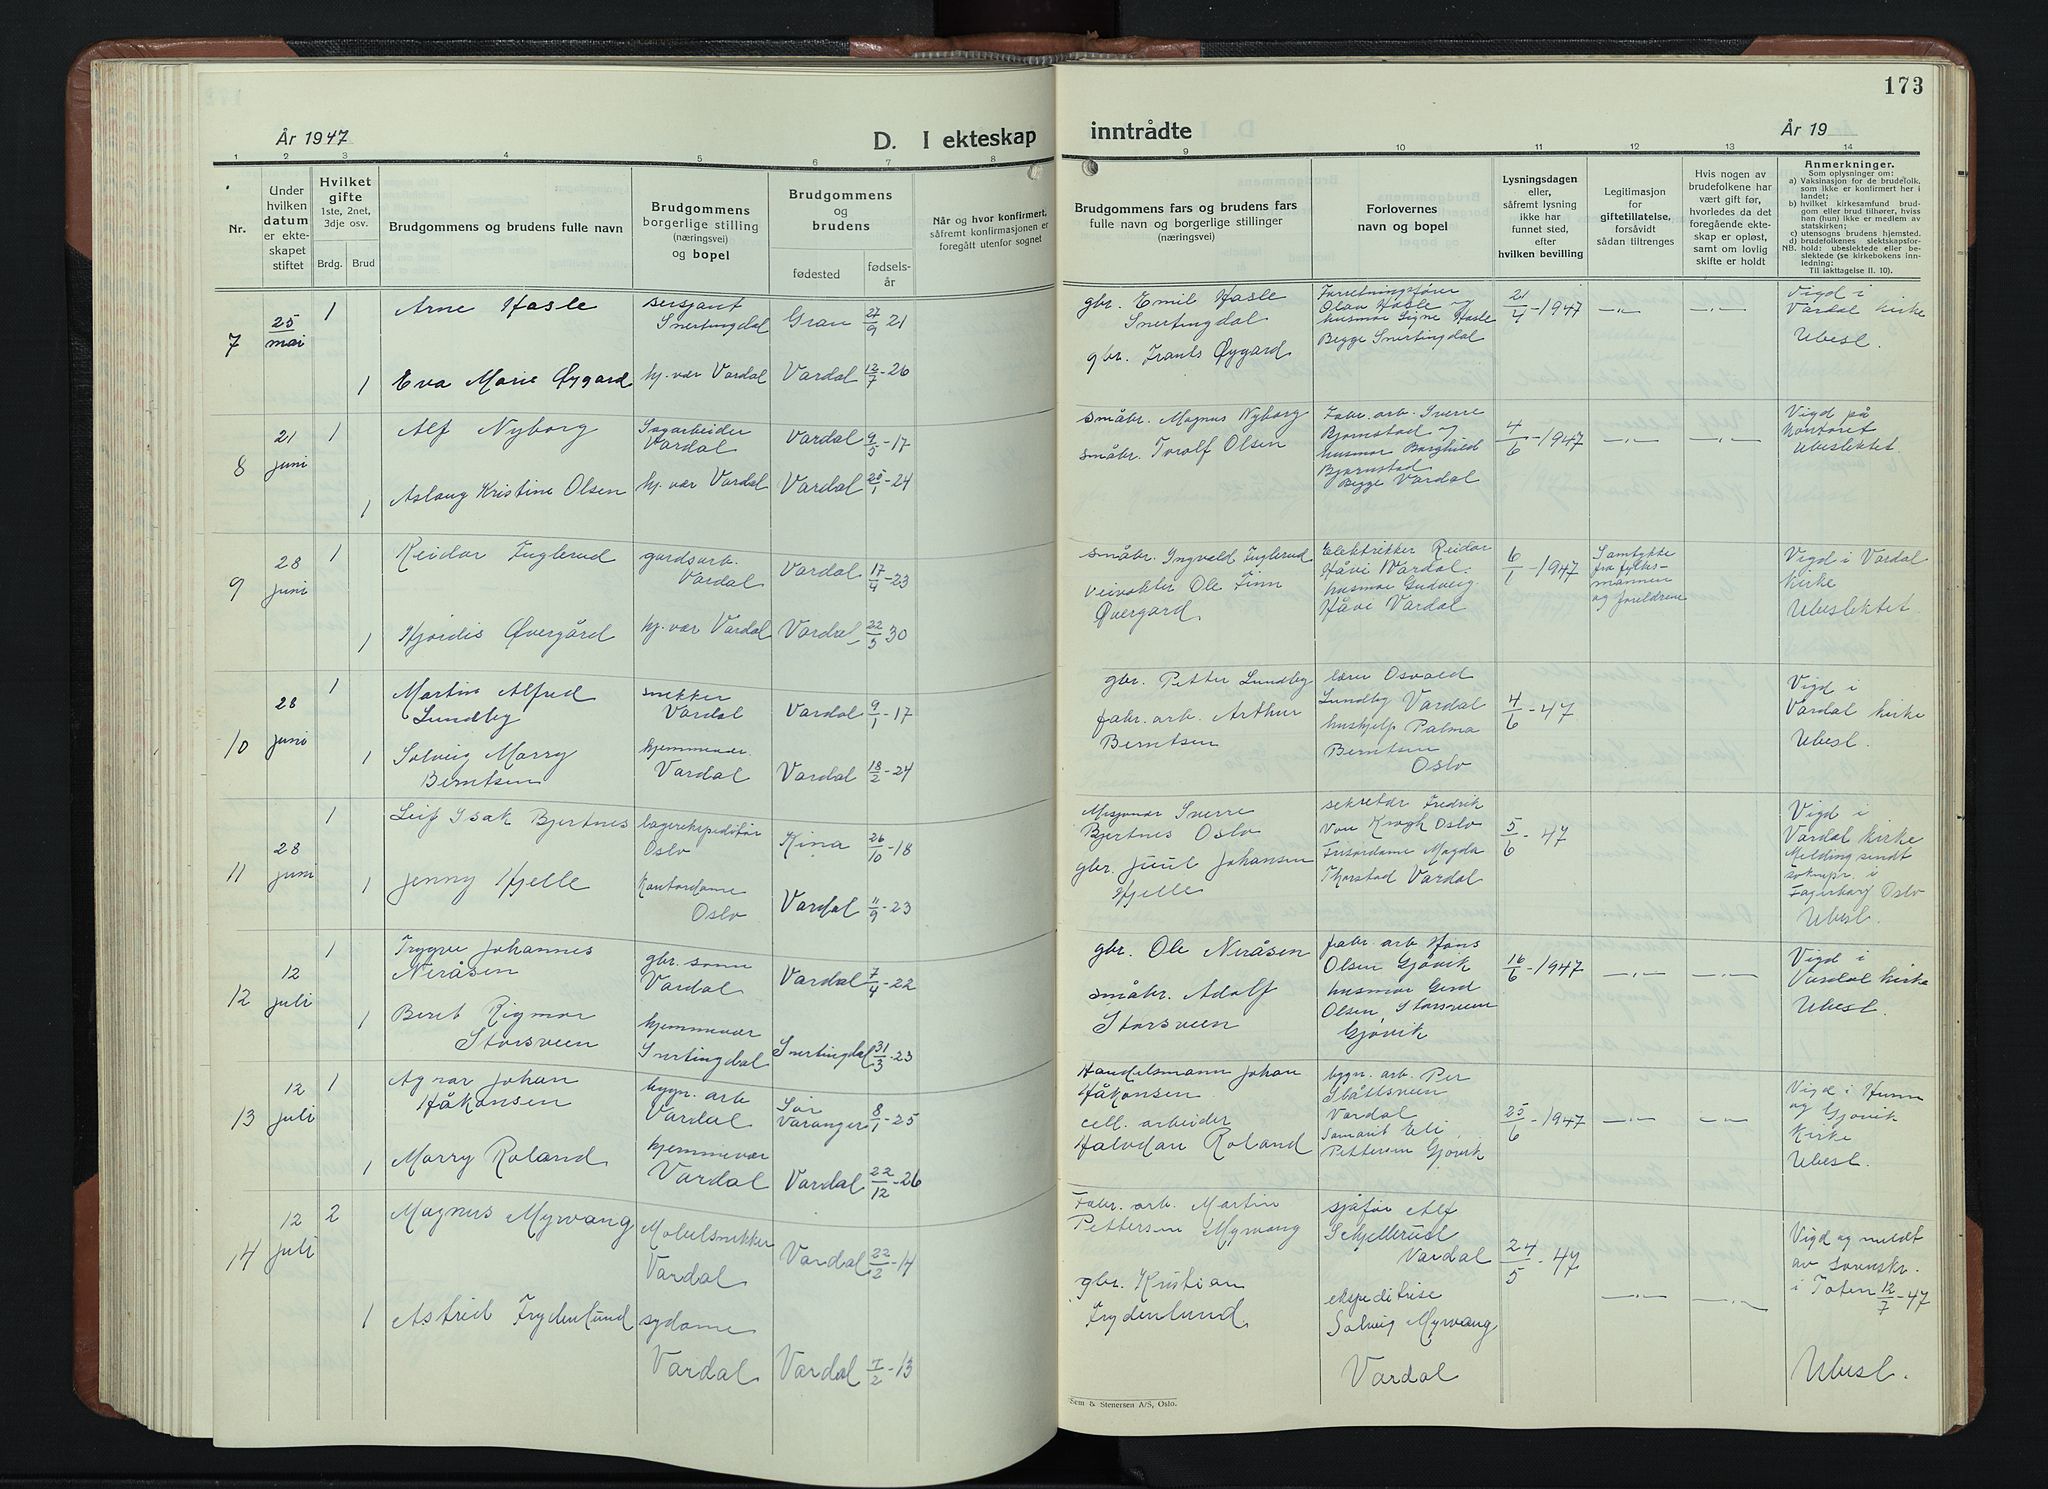 173
År 1947
D. I ekteskap
inntrådte
År 19
1 2 3 4 5 6 7 8 9 10 11 12 13 14
Nr.
Under hvilken datum er ekteskapet stiftet
Hvilket gifte 1ste, 2net, 3dje osv.
Brdg. Brud
Brudgommens og brudens fulle navn
Brudgommens borgerlige stilling (næringsvei) og bopel
Brudgommens og brudens
fødested
fødselsår
Når og hvor konfirmert, såfremt konfirmasjonen er foregått utenfor sognet
Brudgommens fars og brudens fars fulle navn og borgerlige stillinger (næringsvei)
Forlovernes navn og bopel
Lysningsdagen eller, såfremt lysning ikke har funnet sted, efter hvilken bevilling
Legitimasjon for giftetillatelse, forsåvidt sådan tiltrenges
Hvis nogen av brudefolkene har vært gift før, hvorledes da det foregående ekteskap er opløst, samt om lovlig skifte er holdt
Anmerkninger.
Som oplysninger om:
a) Vaksinasjon for de brudefolk, som ikke er konfirmert her i landet;
b) hvilket kirkesamfund brudgom eller brud tilhører, hviss han (hun) ikke er medlem av statskirken;
c) utensogns brudens hjemsted.
d) brudefolkenes slektskapsforhold: ubeslektede eller beslektede (se kirkebokens innledning:
NB. Til iakttagelse II. 10).
7 25 mai 1 Arne Hasle sersjant Snertingdal Gran 27/9 21
1 Eva Marie Øygard hj. vær Vardal Vardal 12/7-26
gbr. Emil Hasle Snertingdal
gbr. Frants Øygard
Forretningsfører Olav Hasle og husmor Signe Hasle Begge Snertingdal
21/4-1947 —"— —"—
Vigd i Vardal kirke Ubesl.
8 21 juni 1 Alf Nyborg Sagarbeider Vardal Vardal 9/5-17
1 Aslaug Kristine Olsen hj. vær Vardal Vardal 25/1-24
småbr. Magnus Nyborg
småbr. Torolf Olsen
Fabr. arb. Sverre Bjørnstad og husmor Borghild Bjørnstad Begge Vardal
4/6-1947 —"— —"—
Vigd på kontoret Ubeslektet.
9 28 juni 1 Reidar Fuglerud gardsarb. Vardal Vardal 17/4-23
1 Hjørdis Øvergård hj. vær Vardal Vardal 22/5 30
småbr. Ingvald Fuglerud
veivokter Ole Finn Øvergard.
Elektrikker Reidar Håvi Vardal. husmor Gudveig Håvi Vardal
6/1-1947
Samtykke fra fylkesmannen og foreldrene
Vigd i Vardal kirke Ubeslektet.
10 28 juni 1 Martin Alfred Lundby snekker Vardal Vardal 9/1-17
1 Solveig Marry Berntsen hjemmevær. Vardal Vardal 18/2-24
gbr. Petter Lundby
fabr. arb. Arthur Berntsen
lærer Osvald Lundby Vardal hushjelp Palma Berntsen Oslo
4/6-47
Vigd i Vardal kirke Ubesl.
11 28 juni 1 Leif Isak Bjertnes lagerekspeditør Oslo Kina 26/10-18
1 Jenny Hjelle Kontordame Oslo Vardal 11/9-23
Misjonær Sverre Bjertnes Oslo
gbr. Juul Johansen Hjelle
sekretær Fredrik von Krogh Oslo Frisørdame Magda Thorstad Vardal
5/6-47
Vigd i Vardal kirke Melding sendt soknepr. i Fagerborg Oslo Ubesl.
12 12 juli 1 Trygve Johannes Neråsen gbr. sønn Vardal Vardal 7/4-22
1 Berit Rigmor Storsveen hjemmevær Snertingdal Snertingdal 31/3-23
gbr. Ole Neråsen
småbr. Adolf Storsveen
fabr. arb Hans Olsen Gjøvik husmor Gerd Olsen, Storsveen Gjøvik
16/6-1947 —"— —"—
Vigd i Vardal kirke Ubesl.
13 12 juli 1 Agnar Johan Håkonsen bygn. arb Vardal Sør Varanger 8/1-25
1 Marry Roland hjemmevær Vardal Vardal 22/12-26
Handelsmann Johan Håkonsen.
cell. arbeider Halvdan Roland
bygn. arb. Per Vardal Samarit Eli Pettersen Gjøvik
25/6-1947 —"— —"—
Vigd i Hunn og Gjøvik Kirke Ubesl.
14 12 juli 2 Magnus Myrvang Møbelsnekker Vardal Vardal 22/2-14
1 Astrid Frydenlund sydame Vardal Vardal 7/2-13
Fabr. arb. Martin Pettersen Myrvang
gbr. Kristian Frydenlund
sjåfør Alf Skjellerud Vardal ekspeditrise Solveig Myrvang Vardal
24/5-47 —"— —"—
Vigd og meldt av sorenskr. i Toten 12/7-47 Ubesl.
Sem & Stenersen A/S, Oslo.